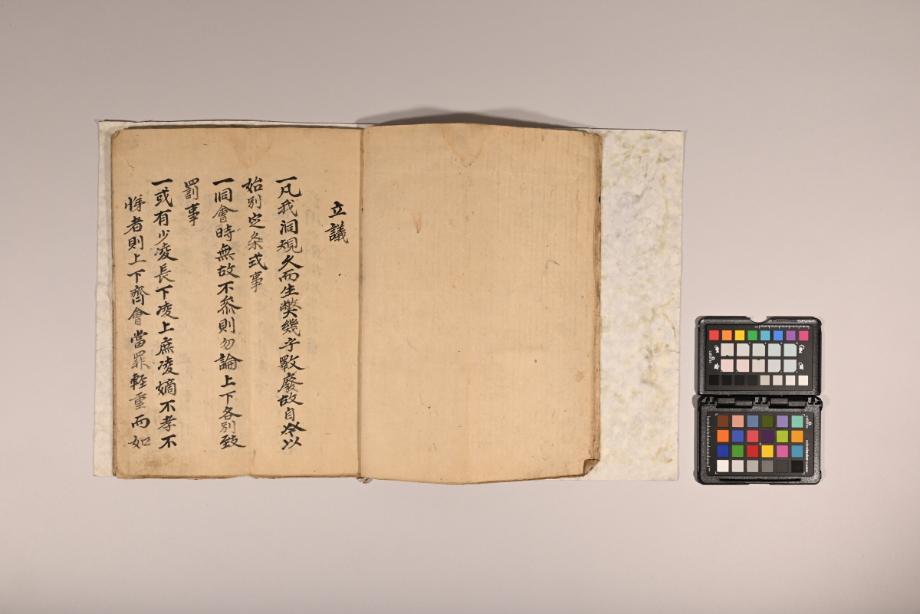 立議
一凡我洞規久而生弊幾乎數廢故自今以
始別定条式事
一洞會時無故不參則勿論上下各別致
罰事
一或有少凌長下凌上庶凌嫡不孝不
悌者則上下齊會當罪輕重而如